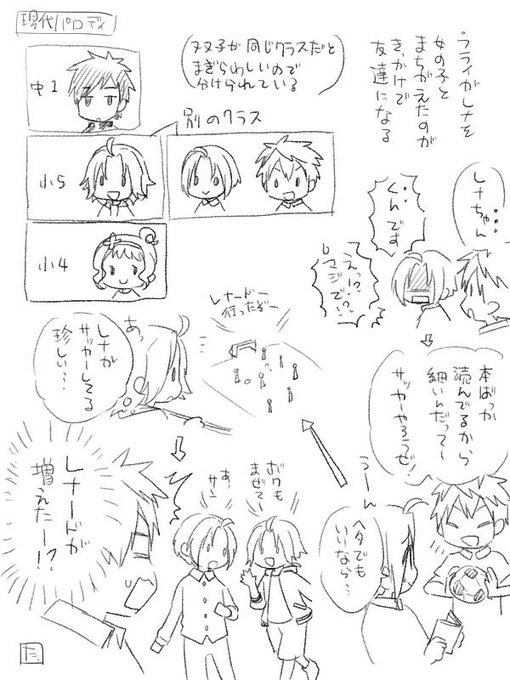 現代パロディ
中1
双子が同じクラスだと
まぎらわしいので
分けられている
別のクラス
小5
小4
フライがレナを
女の子と
まちがえたのが
きっかけで
友達になる
レナちゃん…
くんです
えっ!?
マジで!?
本ばっか
読んでるから
細いんだって〜
サッカーやろうぜ!
うーん
ヘタでも
いいなら…
レナードー
行ったぞー
あっ
レナが
サッカーしてる
珍しい…
ボクも
まぜて
あ、
サン
レナードが
増えたー!?
た。